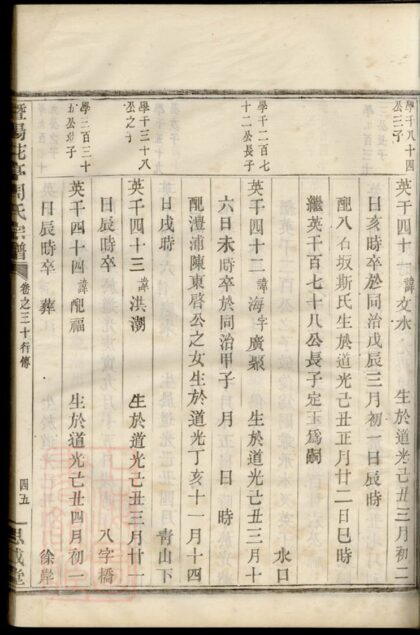 英千四十一 諱文水 生於道光己丑三月初二
日亥時卒於同治戊辰三月初一日辰時
配八石坂斯氏生於道光己丑正月廿二日巳時
繼英千百七十八公長子定玉為嗣
水口
學千二百七
十二公長子
英千四十二 諱海字廣聚 生於道光己丑三月十
六日未時卒於同治甲子 月 日 時
配澧浦陳東啓公之女生於道光丁亥十一月十四
日戌時 青山下
學千三十八
公之子
英千四十三 諱洪潮 生於道光己丑三月廿一
日辰時卒 八字橋
學三百三十
公 子
英千四十四 諱配福 生於道光己丑四月初二
日辰時卒 葬 徐岸
暨陽花亭周氏宗譜
卷之三十行傳
四五
思成堂